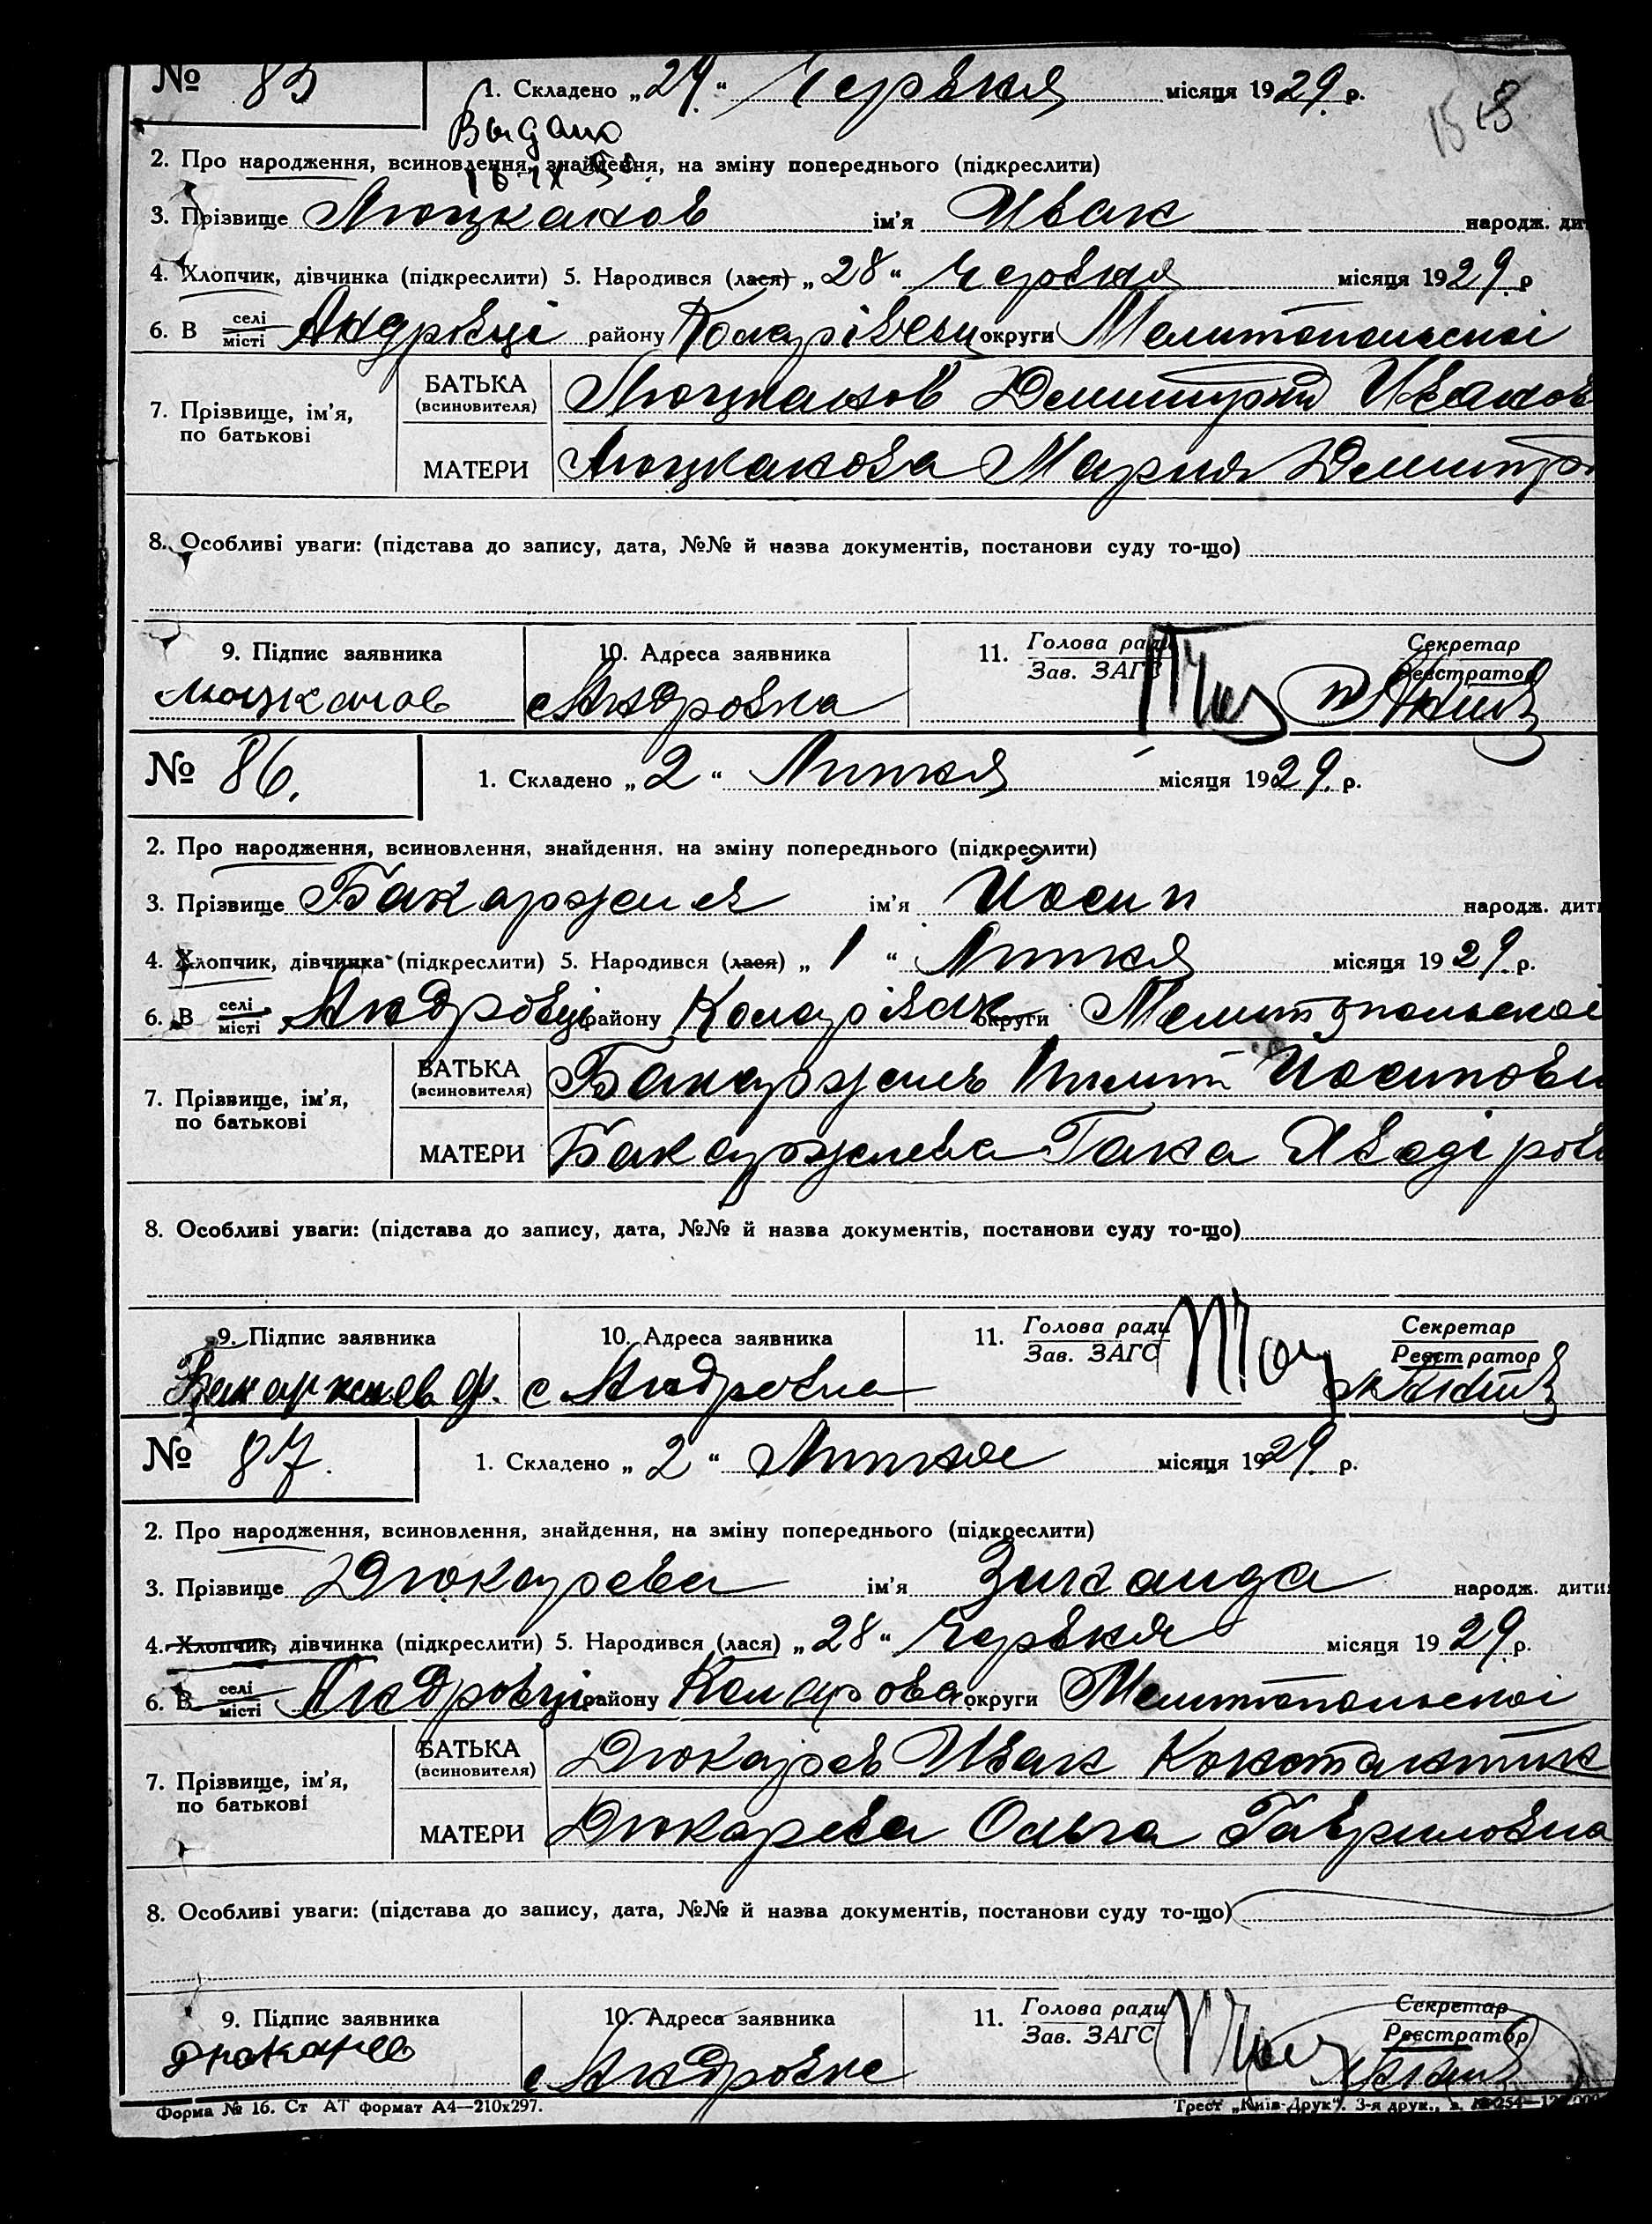 № 85 1. Складено „29.“ Червня місяця 1929. р.
Выдано
2. Про народження, всиновлення, знайдення, на зміну попереднього (підкреслити)
3. Прізвище Люцканов ім'я Иван народж. дит
4. Хлопчик, дівчинка (підкреслити) 5. Народився (лася) „28“ Червня місяця 1929. р
6. В селі/місті Андрівці району округи Мелитопольскоі
7. Прізвище, ім'я, по батькові БАТЬКА (всиновителя) Люцканов Демитрий Иванов
МАТЕРИ Люцканова Мария Демитр
8. Особливі уваги: (підстава до запису, дата, №№ й назва документів, постанови суду то-що)
9. Підпис заявника 10. Адреса заявника 11. Голова ради/Зав. ЗАГС Секретар/Реєстратор
Люцканов с Андровка
№ 86. 1. Складено „2“ Липня місяця 1929. р.
2. Про народження, всиновлення, знайдення, на зміну попереднього (підкреслити)
3. Прізвище ім'я Йосип народж. дити
4. Хлопчик, дівчинка (підкреслити) 5. Народився (лася) „1“ Липня місяця 1929. р.
6. В селі/місті Андровці району округи Мелитопольскоі
7. Прізвище, ім'я, по батькові БАТЬКА (всиновителя) Йосипови
МАТЕРИ
8. Особливі уваги: (підстава до запису, дата, №№ й назва документів, постанови суду то-що)
9. Підпис заявника 10. Адреса заявника 11. Голова ради/Зав. ЗАГС Секретар/Реєстратор
Бакаржиев Ф. с Андровка
№ 87. 1. Складено „2“ Липня місяця 1929. р.
2. Про народження, всиновлення, знайдення, на зміну попереднього (підкреслити)
3. Прізвище Дюкарева ім'я Зинаида народж. дити
4. Хлопчик, дівчинка (підкреслити) 5. Народився (лася) „28“ Червня місяця 1929. р.
6. В селі/місті Андровці району округи Мелитопольскоі
7. Прізвище, ім'я, по батькові БАТЬКА (всиновителя) Дюкарев Иван Константин
МАТЕРИ Дюкарева Ольга Гавриловна
8. Особливі уваги: (підстава до запису, дата, №№ й назва документів, постанови суду то-що)
9. Підпис заявника 10. Адреса заявника 11. Голова ради/Зав. ЗАГС Секретар/Реєстратор
Дюкарев с Андровка
Форма № 16. Ст АТ формат А4—210х297. Трест „Київ-Друк“. 3-я друк.,